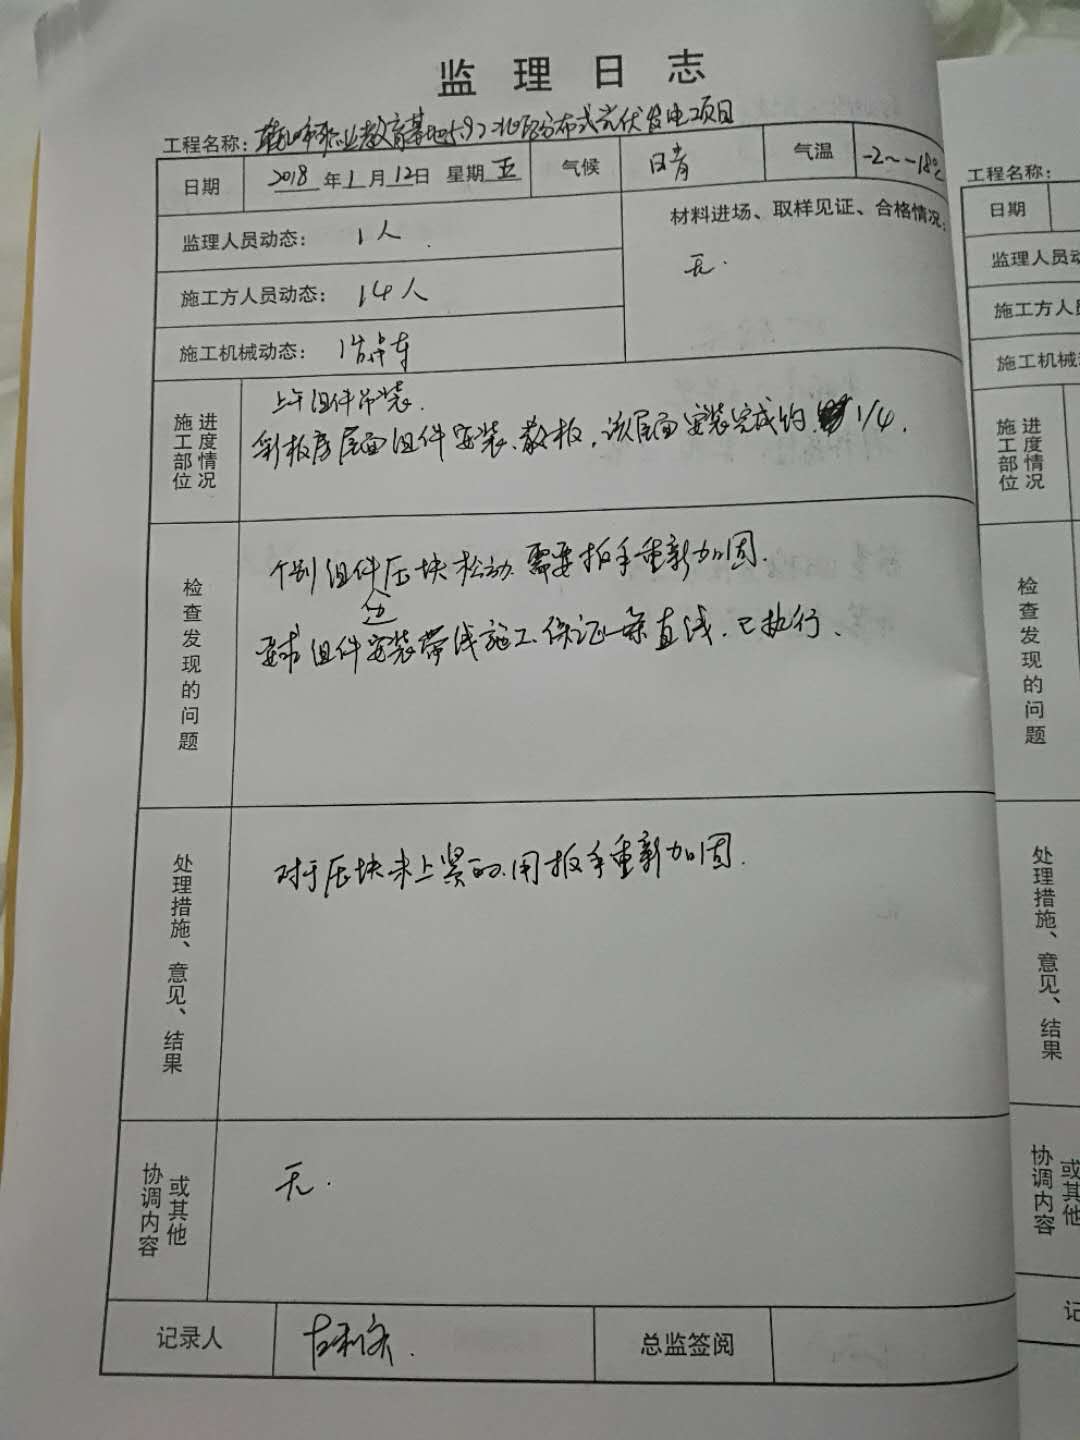 监理日志
工程名称: 市职业教育基地5.92 分布式光伏发电项目
日期 2018年1月12日 星期五 气候 日青 气温 -2~-18℃
监理人员动态: 1人.
材料进场、取样见证、合格情况:
无.
施工方人员动态: 14人
施工机械动态: 1 车
施工部位 进度情况
上午组件吊装.
彩板房屋面组件安装、散板,该屋面安装完成约 1/4.
检查发现的问题
个别组件压块松动.需要扳手重新加固.
边
要求组件安装带线施工.保证一条直线.已执行.
处理措施、意见、结果
对于压块未上紧的.用扳手重新加固.
协调内容 或其他
无.
记录人
总监签阅
工程名称:
日期
监理人员动
施工方人员
施工机械
施工部位 进度情况
检查发现的问题
处理措施、意见、结果
协调内容 或其他
记